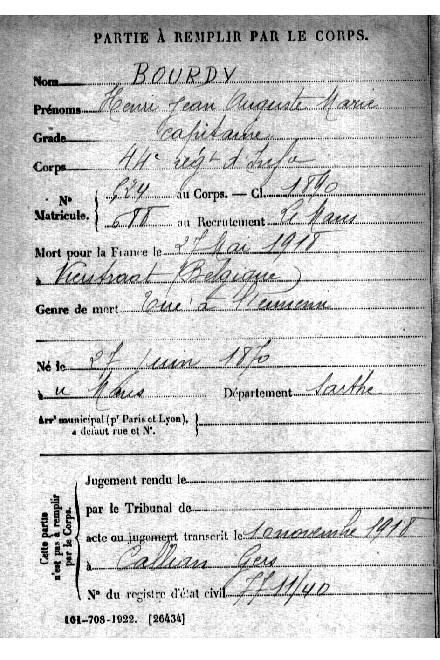 PARTIE À REMPLIR PAR LE CORPS.
Nom BOURDY
Prénoms Henri Jean Auguste Marie
Grade Capitaine
Corps 44e Régt d'Infie
Nº Matricule. 524 au Corps. — Cl. 1890
688 au Recrutement Le Mans
Mort pour la France le 27 Mai 1918
à Vierstraat (Belgique)
Genre de mort Tué à l'Ennemi
Né le 27 Juin 1870
à Mans Département Sarthe
Arrt municipal (pr Paris et Lyon),
à défaut rue et Nº.
Cette partie n'est pas à remplir par le Corps.
Jugement rendu le
par le Tribunal de
acte ou jugement transcrit le 10 novembre 1918
à Callian Gers
Nº du registre d'état civil 11/40
101-708-1922. [26434]